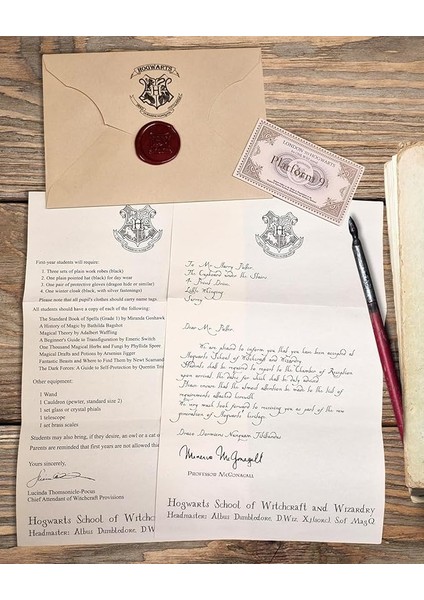 HOGWARTS
LONDON to HOGWARTS
Platform 9¾
First-year students will require:
1 Three sets of plain work robes (black)
2 One plain pointed hat (black) for day wear
3 One pair of protective gloves (dragon hide or similar)
4 One winter cloak (black, with silver fastenings)
Please note that all pupil's clothes should carry name tags.
All students should have a copy of each of the following:
The Standard Book of Spells (Grade 1) by Miranda Goshawk
A History of Magic by Bathilda Bagshot
Magical Theory by Adalbert Waffling
A Beginner's Guide to Transfiguration by Emeric Switch
One Thousand Magical Herbs and Fungi by Phyllida Spore
Magical Drafts and Potions by Arsenius Jigger
Fantastic Beasts and Where to Find Them by Newt Scamand
The Dark Forces: A Guide to Self-Protection by Quentin Tri
Other equipment:
1 Wand
1 Cauldron (pewter, standard size 2)
1 set glass or crystal phials
1 telescope
1 set brass scales
Students may also bring, if they desire, an owl or a cat o
Parents are reminded that first years are not allowed tha
Yours sincerely,
Lucinda Thomsonicle-Pocus
Chief Attendant of Witchcraft Provisions
Hogwarts School of Witchc
Headmaster: Albus Dumbledore, D.W
To Mr. Harry Potter
The Cupboard under the Stairs
4 Privet Drive
Little Whinging
Surrey
Dear Mr. Potter
We are pleased to inform you that you have been accepted at
Hogwarts School of Witchcraft and Wizardry
Students shall be required to report to the Chamber of Reception
upon arrival, the dates for which shall be duly advised
Please ensure that the utmost attention be made to the list of
requirements attached herewith
We very much look forward to receiving you as part of the new
generation of Hogwarts' heritage
Draco Dormiens Nunquam Titillandus
Minerva McGonagall
Professor McGonagall
Hogwarts School of Witchcraft and Wizardry
Headmaster: Albus Dumbledore, D.Wiz. X.J.(sorc.) S.of Mag.Q.